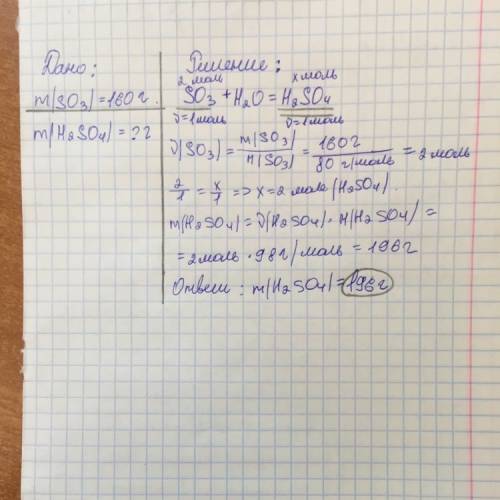 Дано:
m(SO3)=160г.
m(H2SO4)=?г
Решение:
2 моль x моль
SO3 + H2O = H2SO4
ν=1моль ν=1моль
ν(SO3) = m(SO3)/M(SO3) = 160г/80 г/моль = 2 моль
2/1 = x/1 => x=2 моль (H2SO4).
m(H2SO4) = ν(H2SO4) · M(H2SO4) =
= 2моль · 98г/моль = 196г
Ответ: m(H2SO4)=196г